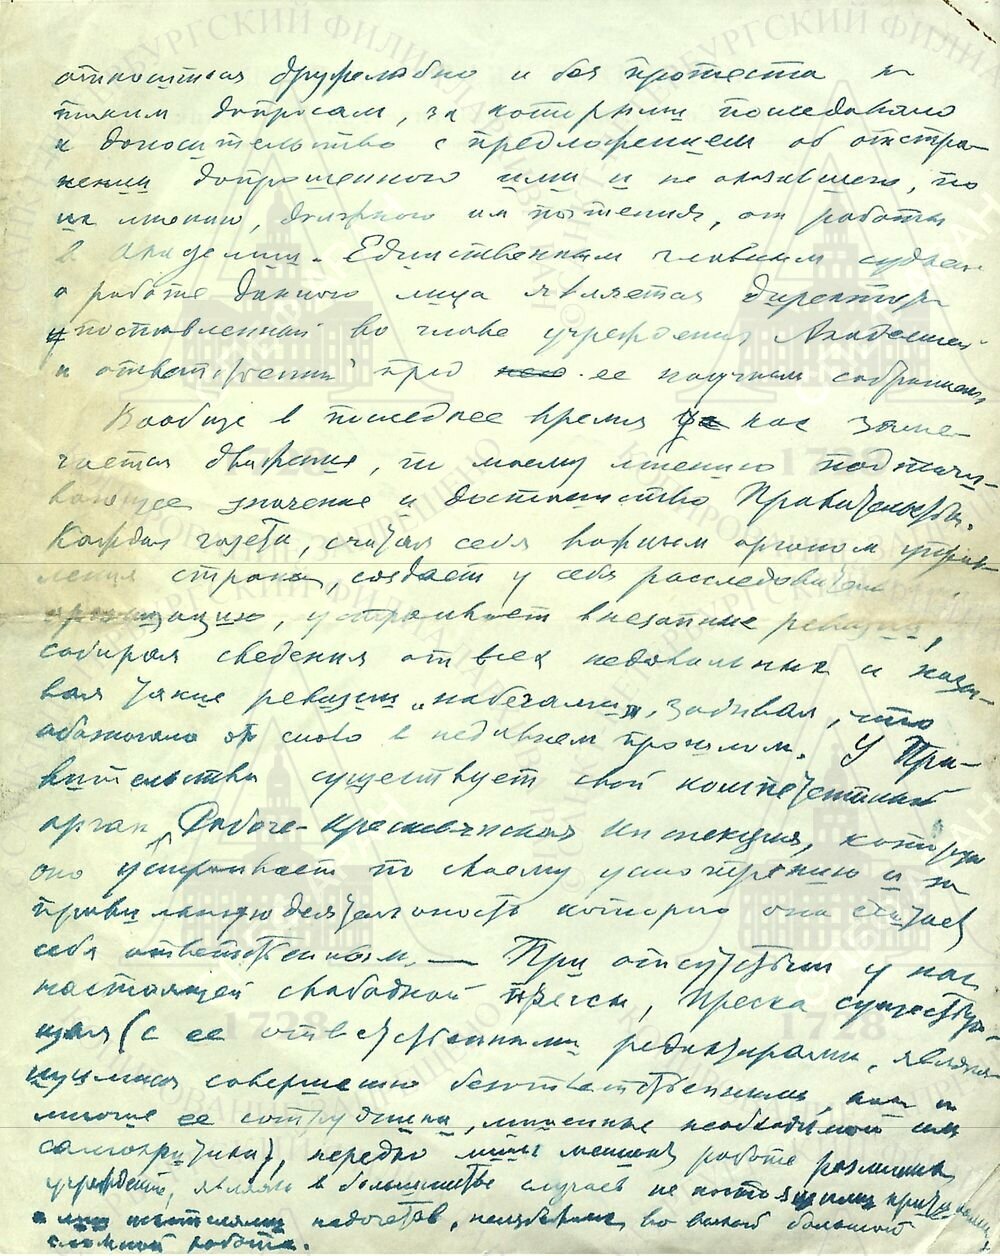 относиться дружелюбно и без протеста к
таким допросам, за которыми последовало
и доносительство с предложением об отстра-
нении допрошенного ими и не оказавшего, по
их мнению, должного им почтения, от работы
в Академии. Единственным главным судьею
о работе данного лица является директор
поставленный во главе учреждения Академией
и ответственный пред ее научным собранием
Вообще в последнее время у нас заме-
чается движение, по моему мнению подтачи-
вающее значение и достоинство Правительства.
Каждая газета, считая себя важным органом управ-
ления страной, создает у себя расследовательскую
организацию, устраивает внезапные ревизии,
собирая сведения от всех недовольных и назы-
вая такие ревизии „набегами", забывая, что
обозначало это слово в недавнем прошлом. У Пра-
вительства существует свой компетентный
орган Рабоче-крестьянская инспекция, которую
оно устраивает по своему усмотрению и за
правильную деятельность которой оно считает
себя ответственным. — При отсутствии у нас
настоящей свободной прессы, пресса существую-
щая (с ее ответственными редакторами, являю-
щимися совершенно безответственными, как и
многие ее сотрудники, лишенные необходимой им
самокритики), нередко лишь мешает работе различных
учреждений, являясь в большинстве случаев не
недочетов, неизбежных во всякой большой
сложной работе.